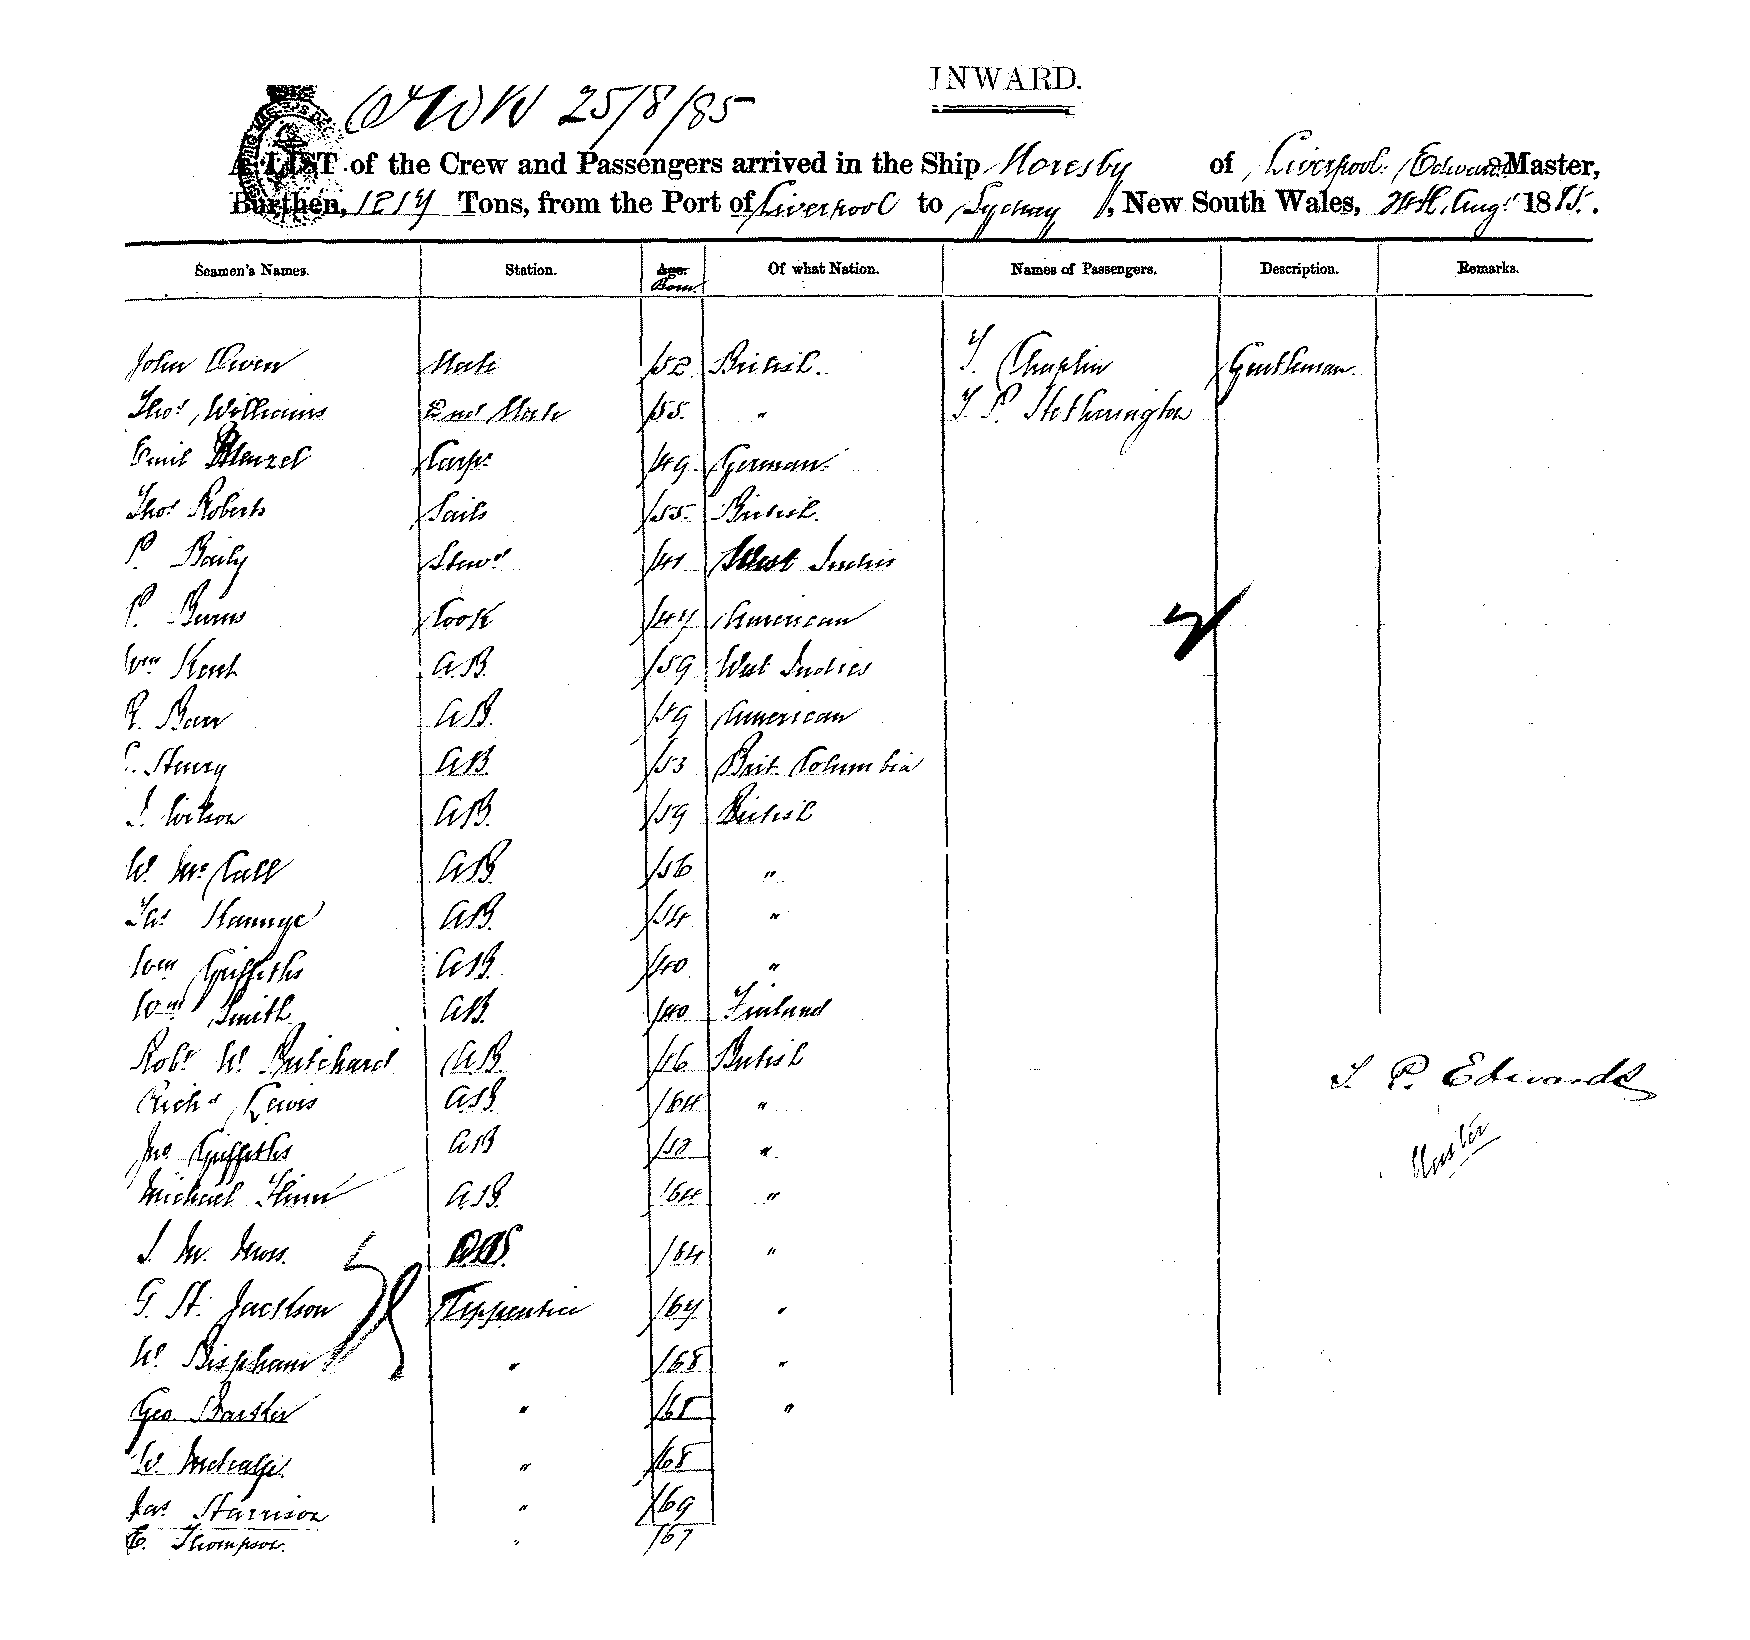 INWARD.
25/8/85
A LIST of the Crew and Passengers arrived in the Ship Moresby of Liverpool. Edwards Master,
Burthen, 1217 Tons, from the Port of Liverpool to Sydney, New South Wales, 24th Augt 1885.
Seamen's Names. Station. Age. Born. Of what Nation. Names of Passengers. Description. Remarks.
John Owen Mate /52 British. T. Chaplin Gentleman.
Thos Williams 2nd Mate /55 " T. P. Hetherington
Emil Menzel Carpr /49 German
Thos Roberts Sails /55 British.
P. Baily Stewd /41 West Indies
P. Burns Cook /47 American
Wm Kent A.B. /59 West Indies
Barr A.B. /59 American
Henry A.B. /53 Brit Columbia
J. Wilson A.B. /59 British
W. McCall A.B. /56 "
Jas A.B. /54 "
Wm Griffiths A.B. /40 "
Wm Smith A.B. /40 Finland
Robt W. Pritchard A.B. /46 British
Richd Lewis A.B. /64 "
Jno Griffiths A.B. /50 "
Michael Flinn A.B. /64 "
J. M. Moss. O.S. /64 "
G. H. Jackson Apprentice /67 "
W. Bispham " /68 "
Geo. Barker " /65 "
W. Metcalfe " /68
Jas Harrison " /69
E. Thompson. " /67
J. P. Edwards
Master